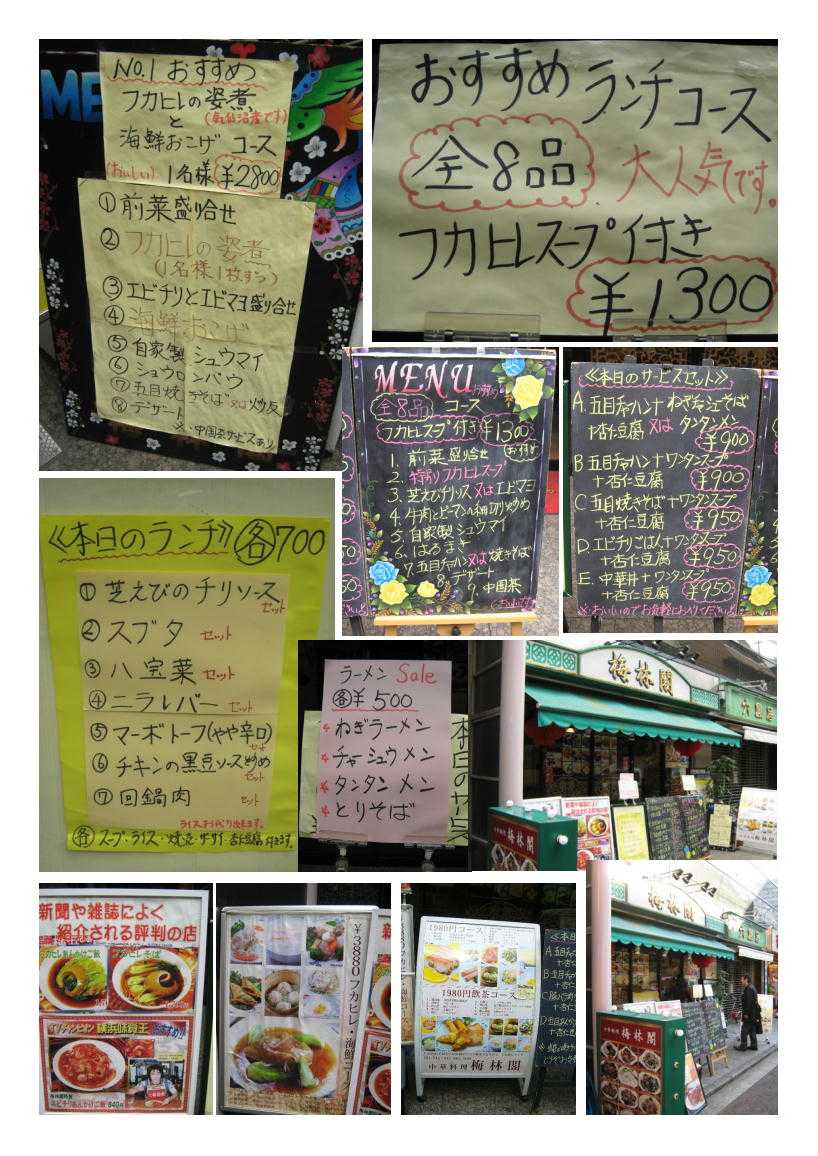 No.1 おすすめ
フカヒレの姿煮
(気仙沼産です)
と
海鮮おこげ コース
(おいしい) 1名様 ¥2800
① 前菜盛り合せ
② フカヒレの姿煮
(1名様1枚ずつ)
③ エビチリとエビマヨ盛り合せ
④ 海鮮おこげ
⑤ 自家製 シュウマイ
⑥ ショウロンパウ
⑦ 五目焼きそば 又は 炒反
⑧ デザート
※中国茶サービスあり
おすすめ ランチ コース
全8品 大人気です。
フカヒレスープ付き
¥1300
MENU
おすすめ
全8品 コース
フカヒレスープ付き ¥1300
1. 前菜盛り合せ
2. 特製フカヒレスープ
3. 芝えびチリソース 又は エビマヨ
4. 牛肉とピーマンの細切り炒め
5. 自家製 シュウマイ
6. はるまき
7. 五目チャハン又は焼きそば
8. デザート
9. 中国茶
≪本日のサービスセット≫
A. 五目チャハン+ねぎチャーシューそば
+杏仁豆腐 又は タンタンメン
¥900
B 五目チャハン+ワンタンスープ
+杏仁豆腐 ¥900
C 五目焼きそば+ワンタンスープ
+杏仁豆腐 ¥950
D. エビチリごはん+ワンタンスープ
+杏仁豆腐 ¥950
E. 中華丼+ワンタンスープ
+杏仁豆腐 ¥950
≪本日のランチ≫ 各700
① 芝えびのチリソース セット
② スブタ セット
③ 八宝菜 セット
④ ニラレバー セット
⑤ マーボトーフ(やや辛口) セット
⑥ チキンの黒豆ソース炒め セット
⑦ 回鍋肉 セット
各 スープ・ライス・焼売・ザーサイ・杏仁豆腐 付きます。
ラーメン Sale
各¥500
ねぎラーメン
チャーシュウメン
タンタンメン
とりそば
梅林閣
梅林閣
新聞や雑誌によく
紹介される評判の店
フカヒレあんかけご飯
フカヒレそば
横浜味覚王
エビチリあんかけご飯 840円
¥3880 フカヒレ・海鮮コース
1980円コース
1980円飲茶コース
中華料理 梅林閣
梅林閣
梅林閣